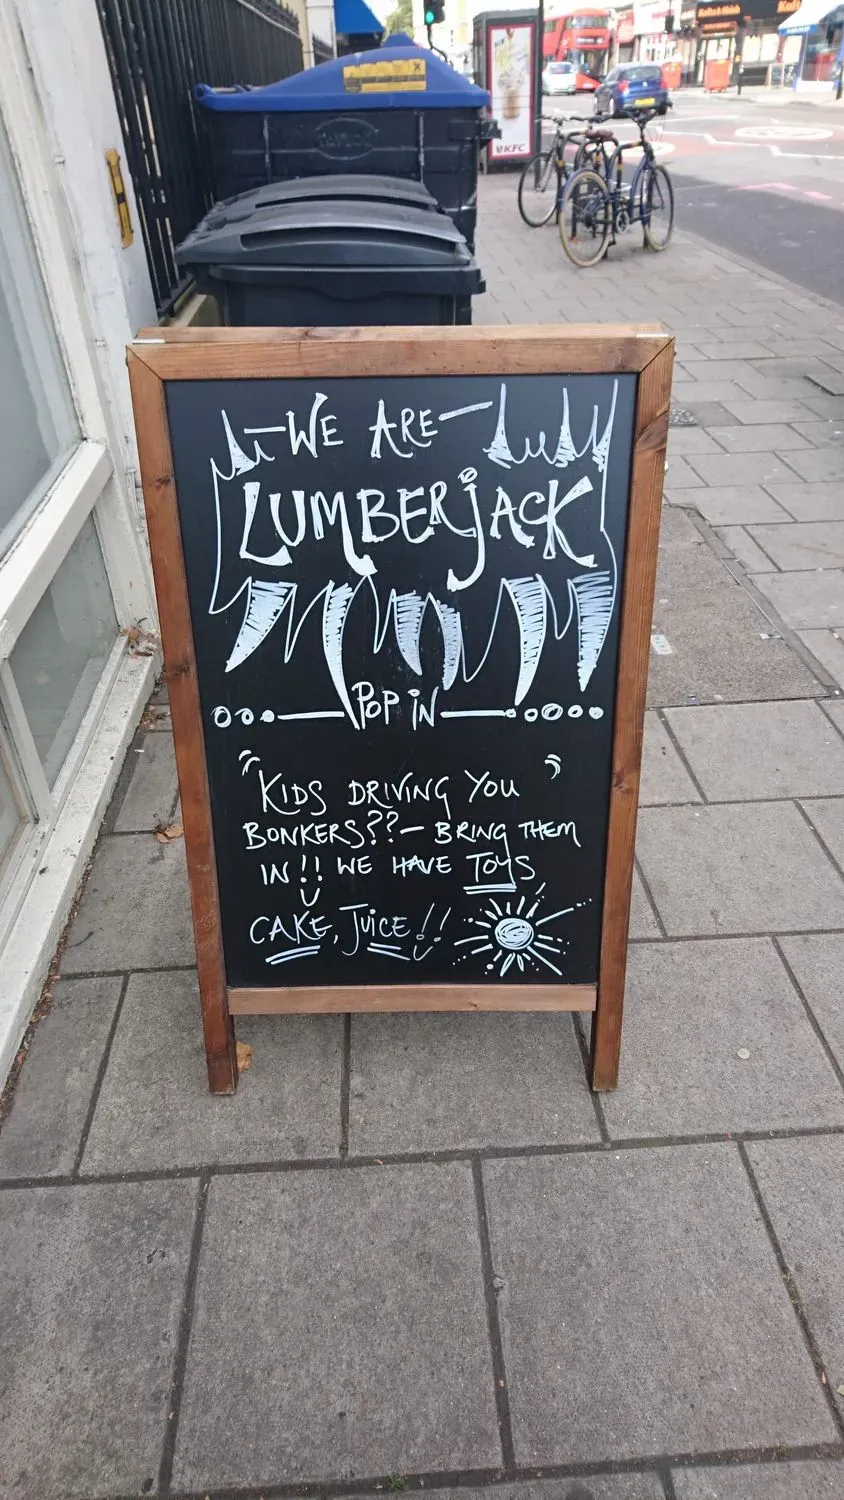 TAYLOR
KFC
- WE ARE -
LUMBERJACK
POP IN
"KIDS DRIVING YOU"
BONKERS??- BRING THEM
IN!! WE HAVE TOYS
CAKE, JUICE!!